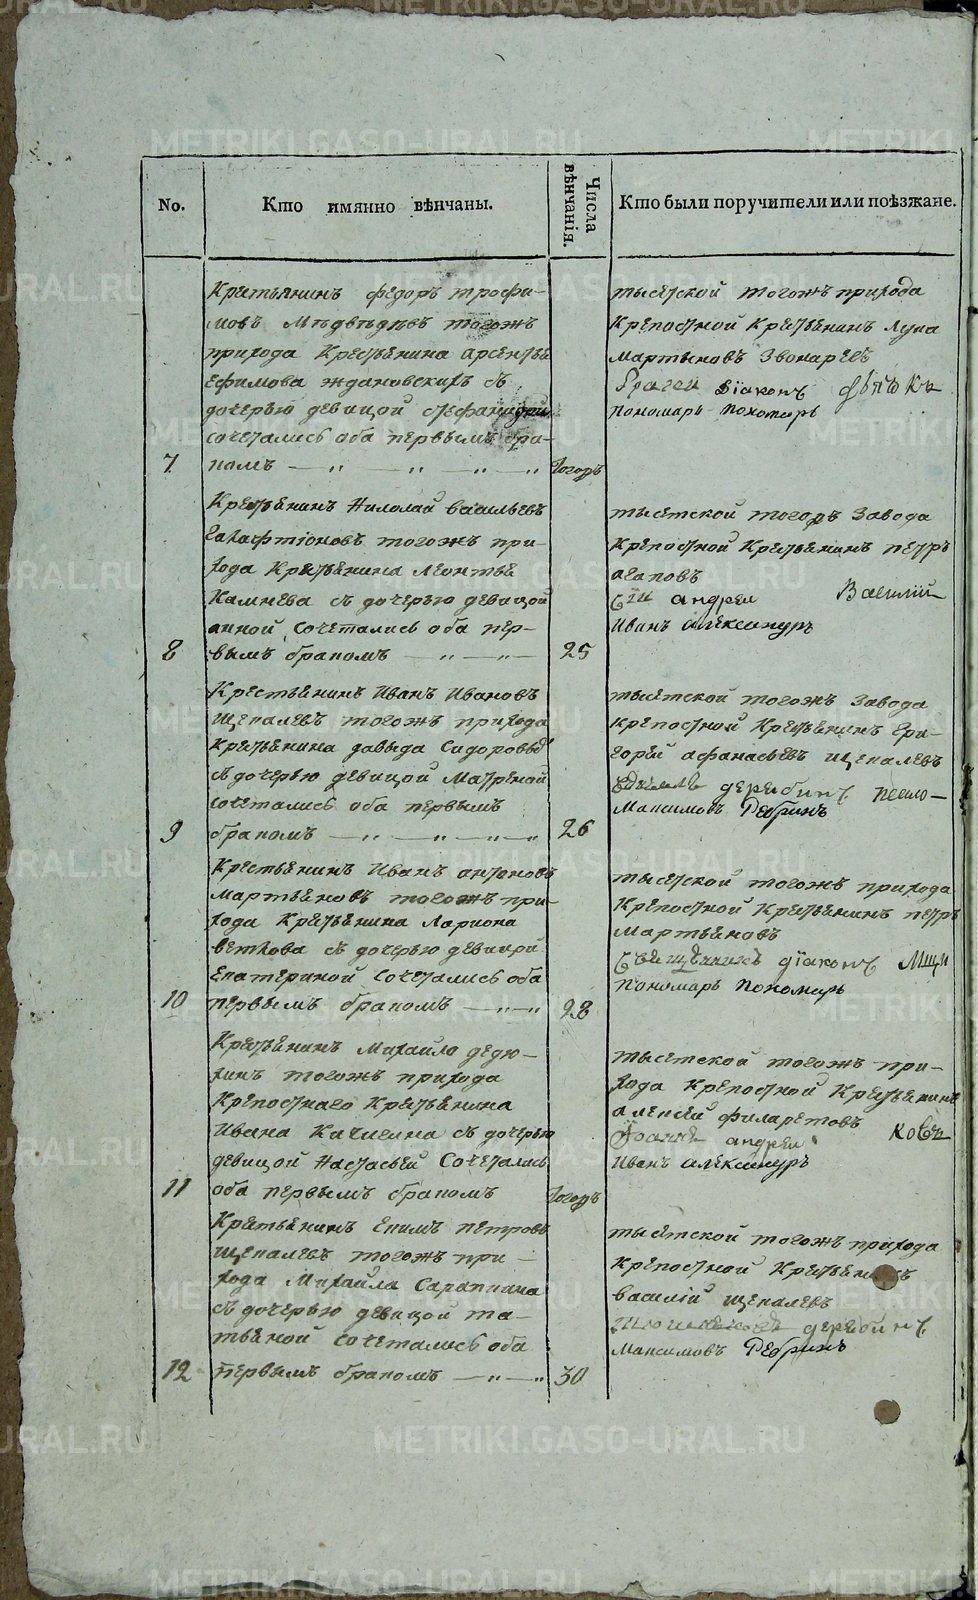 No.
Кто имянно вѣнчаны.
Числа вѣнчанія.
Кто были поручители или поѣзжане.
Крестьянинъ Федоръ трофи-
мовъ Мѣдвѣдѣвъ тогожъ
прихода Крестьянина арсентья
Ефимова ждановскихъ съ
дочерью девицой стефанидой
сочетались оба первымъ бра-
7 комъ
тысятской тогожъ прихода
Крепостной Крестьянинъ Лука
мартыновъ Звонаревъ
діаконъ
пономарь пономарь
Крестьянинъ Николай васильевъ
тогожъ при-
хода Крестьянина Леонтья
Камнева съ дочерью девицой
анной Сочетались оба пер-
8 вымъ бракомъ 25
тысятской тогожъ Завода
Крепостной Крестьянинъ петръ
агаповъ
андреи Василій
Иванъ александръ
Крестьянинъ Иванъ Ивановъ
щепалевъ тогожъ прихода
Крестьянина давыда Сидорова
съ дочерью девицой Матреной
сочетались оба первымъ
9 бракомъ 26
тысятской тогожъ Завода
крепостной Крестьянинъ Гри-
горей афанасьевъ щепалевъ
дерябинъ
Максимовъ Ребринъ
Крестьянинъ Иванъ антоновъ
мартьяновъ тогожъ при-
хода Крестьянина Лариона
веткова съ дочерью девицой
Екатериной Сочетались оба
10 первымъ бракомъ 28
тысятской тогожъ прихода
Крепостной Крестьянинъ петръ
Мартьяновъ
Священникъ діаконъ
пономарь пономарь
Крестьянинъ Михайло дедю-
хинъ тогожъ прихода
Крепостнаго Крестьянина
Ивана с дочерью
девицой Настасьей Сочетались
11 оба первымъ бракомъ
тысятской тогожъ при-
хода Крепостной Крестьянинъ
алексей филаретовъ
андреи
Иванъ александръ
Крестьянинъ Екимъ петровъ
щепалевъ тогожъ при-
хода Михайла Сарапкина
съ дочерью девицой та-
тьяной сочетались оба
12 первымъ бракомъ 30
тысятской тогожъ прихода
Крепостной Крестьянинъ
василій щепалевъ
дерябинъ
Максимовъ Ребринъ
METRIKI.GASO-URAL.RU